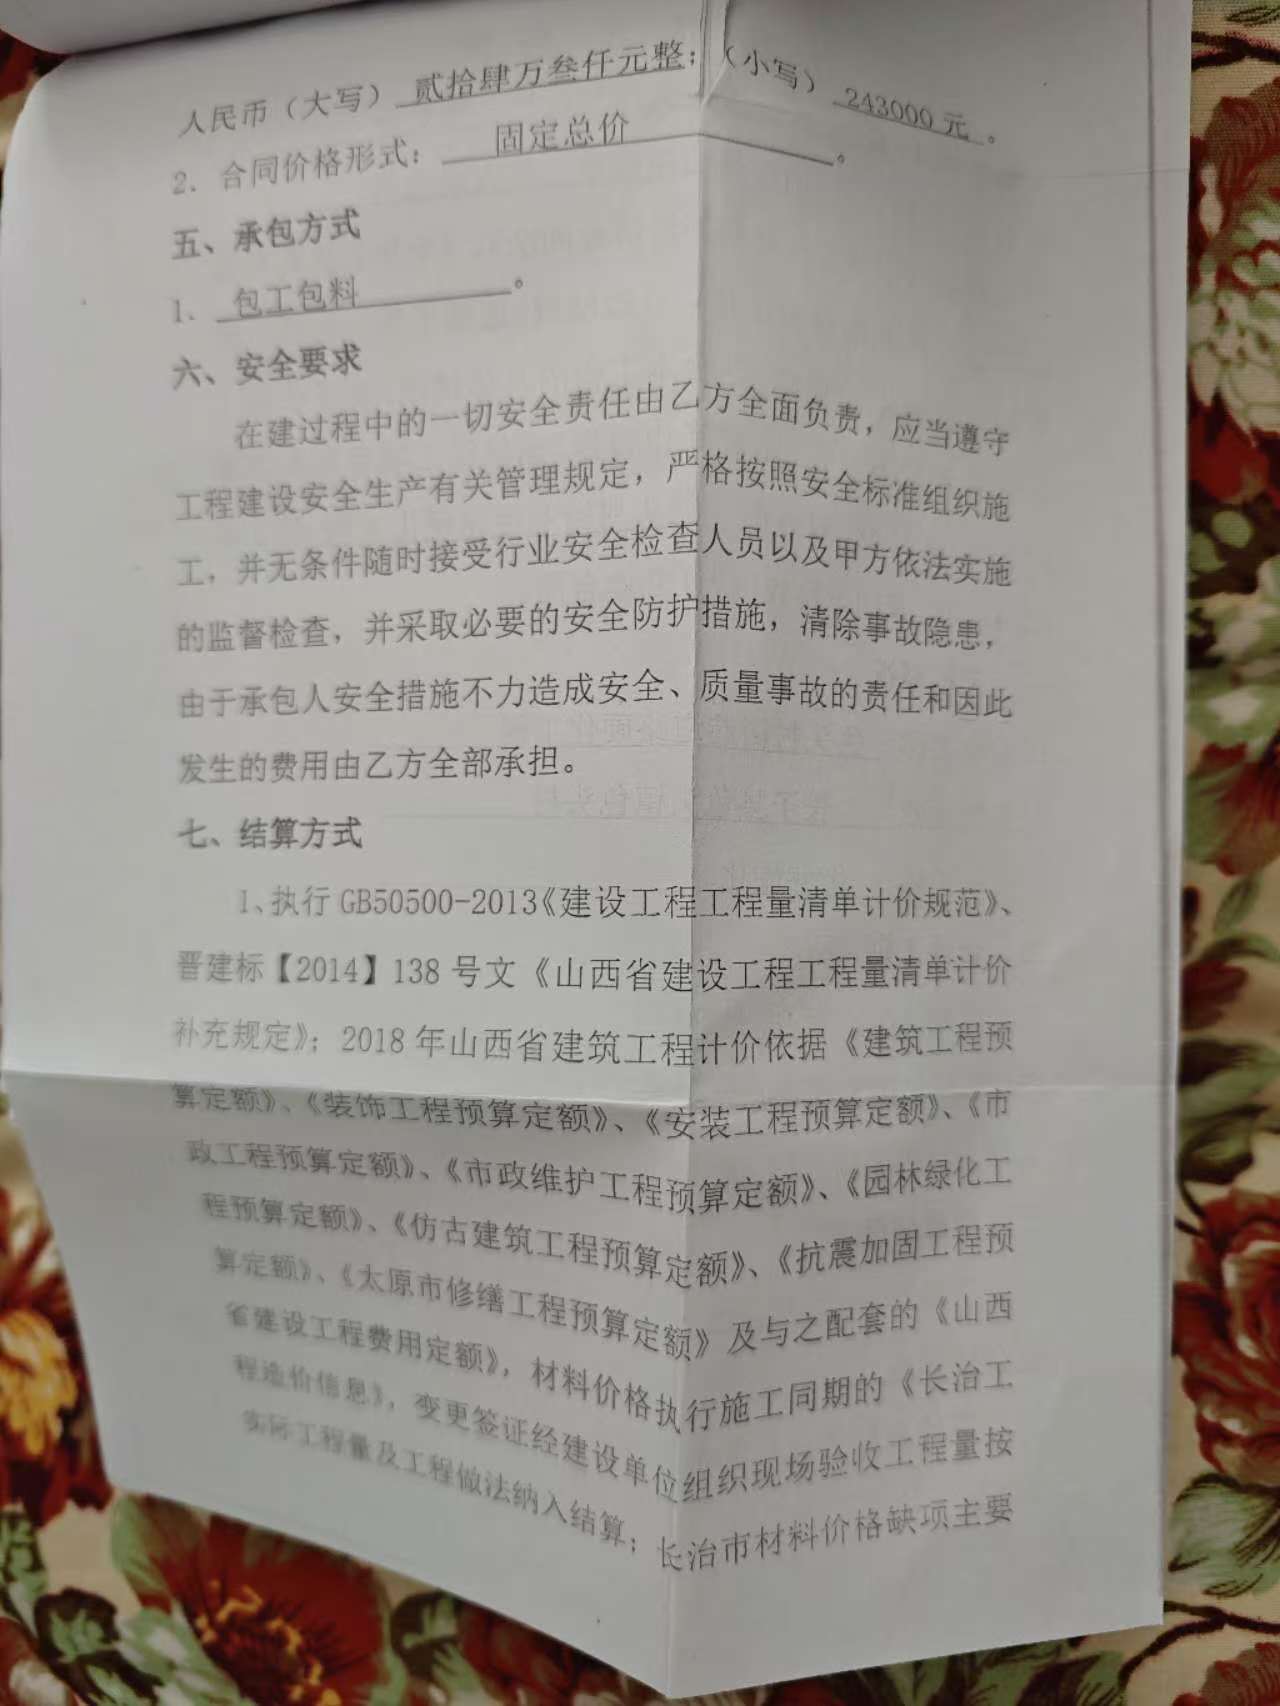 人民币（大写）贰拾肆万叁仟元整；（小写）243000 元。
2. 合同价格形式：固定总价。
五、承包方式
1. 包工包料。
六、安全要求
在建过程中的一切安全责任由乙方全面负责，应当遵守
工程建设安全生产有关管理规定，严格按照安全标准组织施
工，并无条件随时接受行业安全检查人员以及甲方依法实施
的监督检查，并采取必要的安全防护措施，清除事故隐患，
由于承包人安全措施不力造成安全、质量事故的责任和因此
发生的费用由乙方全部承担。
七、结算方式
1、执行 GB50500-2013《建设工程工程量清单计价规范》、
晋建标【2014】138 号文《山西省建设工程工程量清单计价
补充规定》；2018 年山西省建筑工程计价依据《建筑工程预
算定额》、《装饰工程预算定额》、《安装工程预算定额》、《市
政工程预算定额》、《市政维护工程预算定额》、《园林绿化工
程预算定额》、《仿古建筑工程预算定额》、《抗震加固工程预
算定额》、《太原市修缮工程预算定额》及与之配套的《山西
省建设工程费用定额》，材料价格执行施工同期的《长治工
程造价信息》，变更签证经建设单位组织现场验收工程量按
实际工程量及工程做法纳入结算；长治市材料价格缺项主要